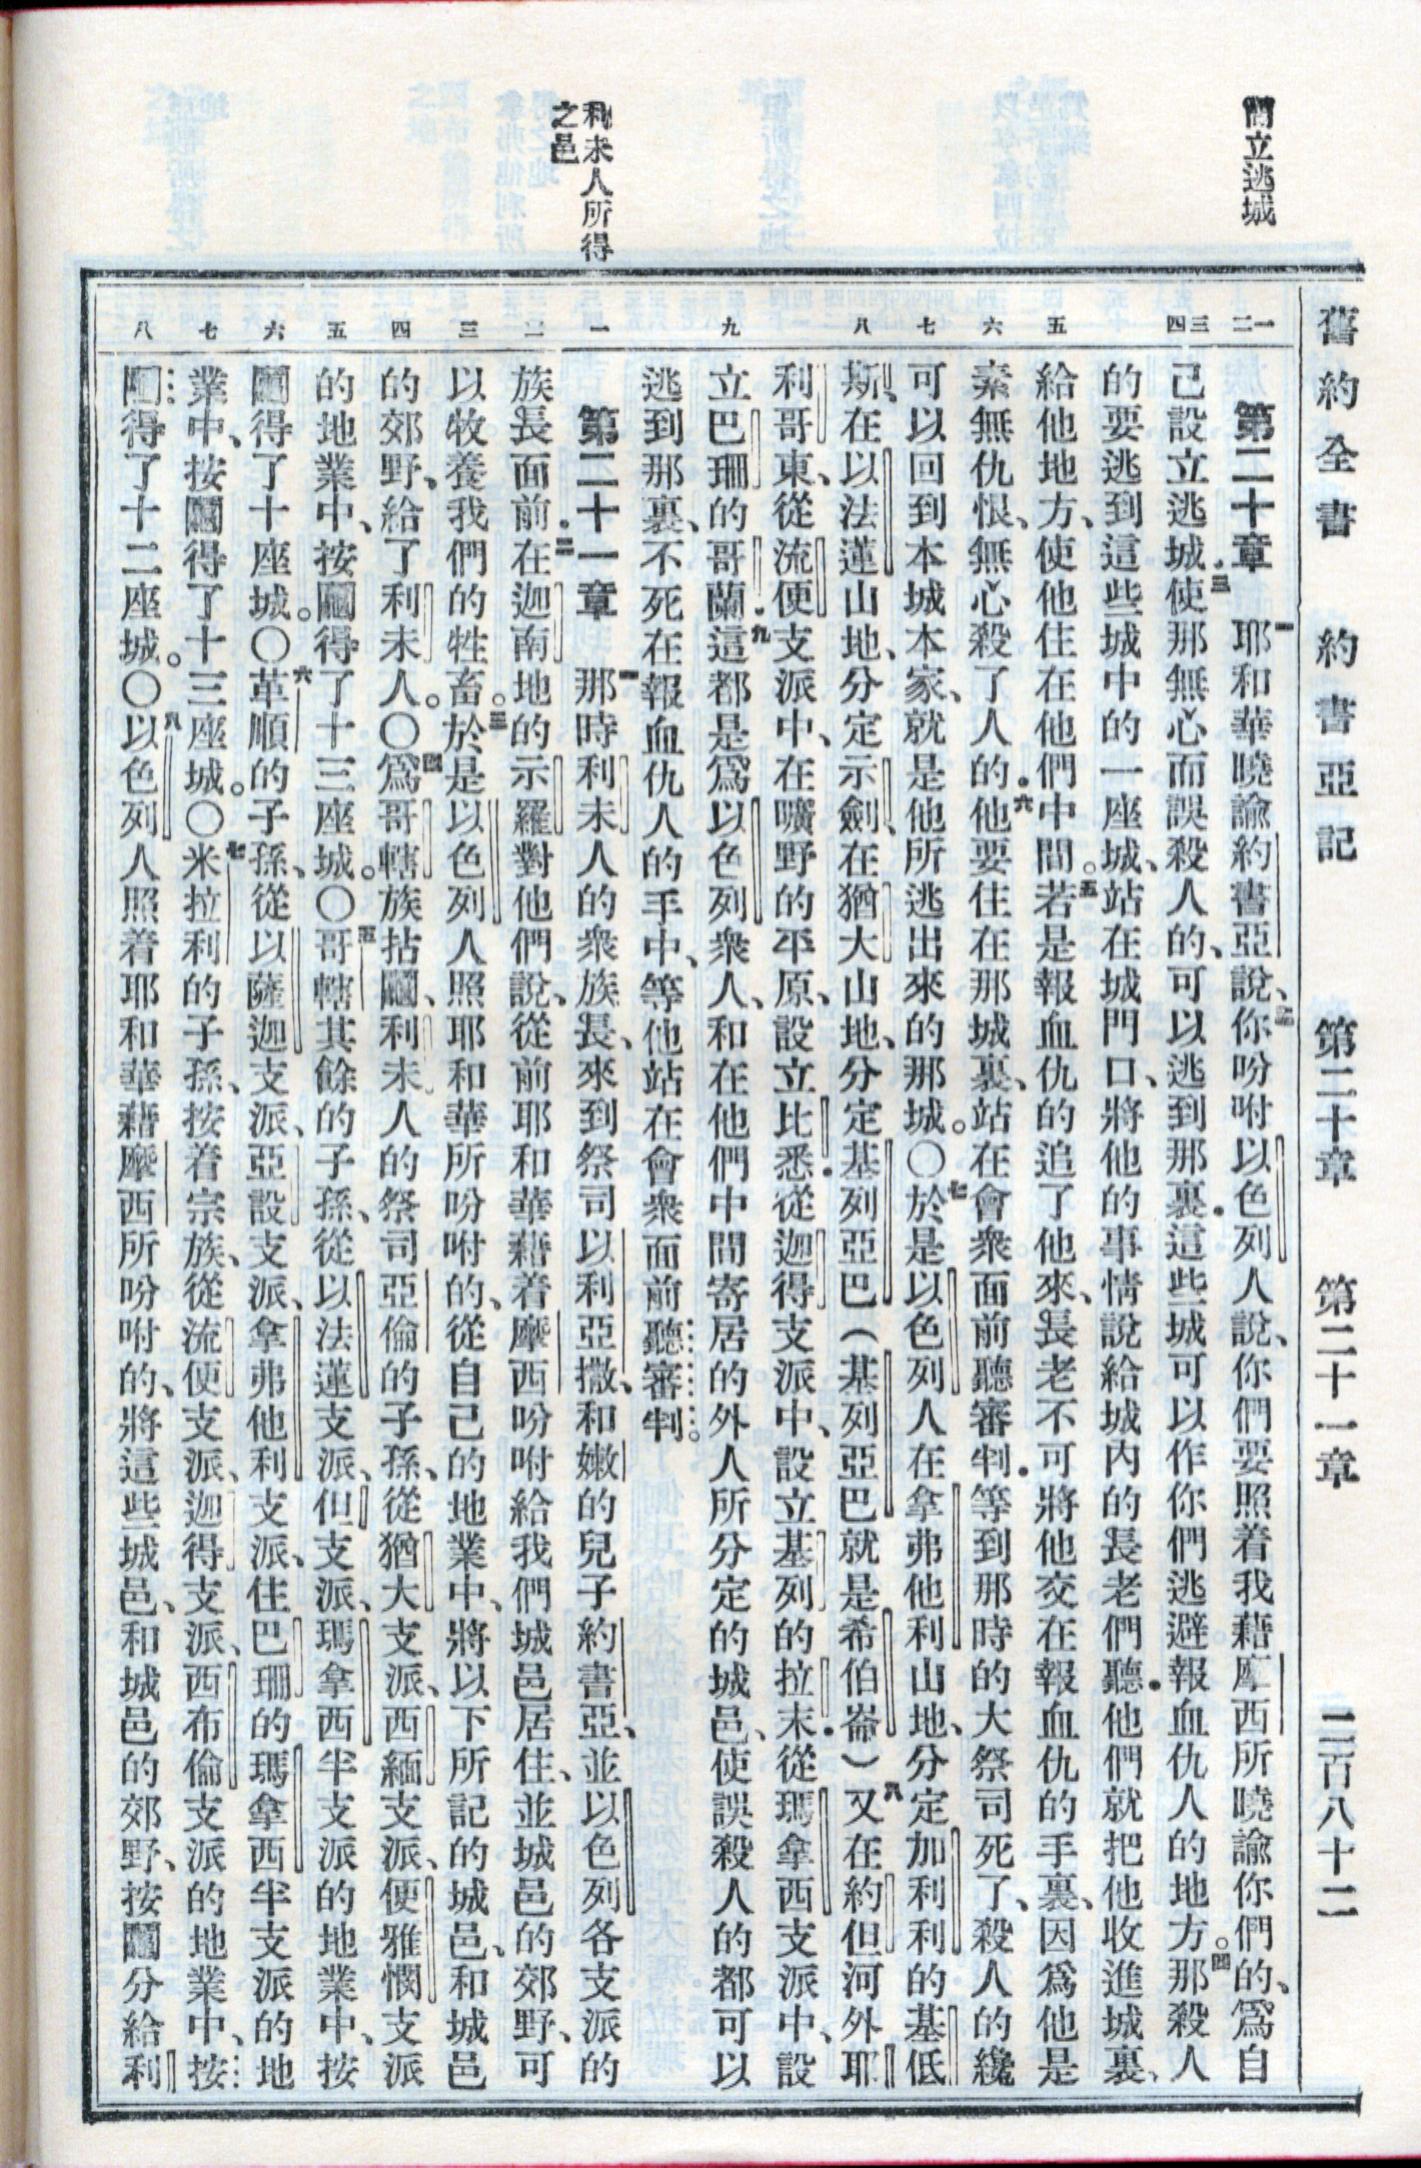 舊約全書 約書亞記 第二十章 第二十一章 二百八十二
設立逃城
利未人所得
之邑
一 二 三 四 五 六 七 八 九 一 二 三 四 五 六 七 八
第二十章 一耶和華曉諭約書亞說、二你吩咐以色列人說、你們要照着我藉摩西所曉諭你們的、爲自
己設立逃城、三使那無心而誤殺人的、可以逃到那裏．這些城可以作你們逃避報血仇人的地方。四那殺人
的要逃到這些城中的一座城、站在城門口、將他的事情說給城內的長老們聽．他們就把他收進城裏、
給他地方、使他住在他們中間。五若是報血仇的追了他來、長老不可將他交在報血仇的手裏、因爲他是
素無仇恨、無心殺了人的．六他要住在那城裏、站在會衆面前聽審判．等到那時的大祭司死了、殺人的纔
可以回到本城本家、就是他所逃出來的那城。〇七於是以色列人在拿弗他利山地、分定加利利的基低
斯、在以法蓮山地、分定示劍、在猶大山地、分定基列亞巴（基列亞巴就是希伯崙）八又在約但河外耶
利哥東、從流便支派中、在曠野的平原、設立比悉．從迦得支派中、設立基列的拉末．從瑪拿西支派中、設
立巴珊的哥蘭．九這都是爲以色列衆人、和在他們中間寄居的外人所分定的城邑、使誤殺人的都可以
逃到那裏、不死在報血仇人的手中、等他站在會衆面前聽審判。
第二十一章 一那時利未人的衆族長、來到祭司以利亞撒、和嫩的兒子約書亞、並以色列各支派的
族長面前．二在迦南地的示羅對他們說、從前耶和華藉着摩西吩咐給我們城邑居住、並城邑的郊野、可
以牧養我們的牲畜。三於是以色列人照耶和華所吩咐的、從自己的地業中、將以下所記的城邑、和城邑
的郊野、給了利未人。〇四爲哥轄族拈鬮、利未人的祭司亞倫的子孫、從猶大支派、西緬支派、便雅憫支派
的地業中、按鬮得了十三座城。〇五哥轄其餘的子孫、從以法蓮支派、但支派、瑪拿西半支派的地業中、按
鬮得了十座城。〇六革順的子孫、從以薩迦支派、亞設支派、拿弗他利支派、住巴珊的瑪拿西半支派的地
業中、按鬮得了十三座城。〇七米拉利的子孫、按着宗族、從流便支派、迦得支派、西布倫支派的地業中、按
鬮得了十二座城。〇八以色列人照着耶和華藉摩西所吩咐的、將這些城邑、和城邑的郊野、按鬮分給利